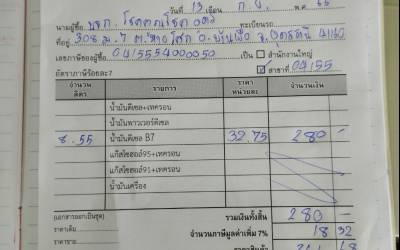 วันที่ 13 เดือน ก.ย. พ.ศ. 65
นามผู้ซื้อ หจก. โชคคณโชค ทะเบียนรถ
ที่อยู่ 308 ม.7 ต. อ.บ้านผือ จ.อุดรธานี 41160
เลขภาษีของผู้ซื้อ 0415554000050 เป็น สำนักงานใหญ่
อัตราภาษีร้อยละ7 สาขาที่ 04155
จำนวน ลิตร รายการ ราคา หน่วยละ จำนวนเงิน
น้ำมันดีเซล+เทครอน
น้ำมันพาวเวอร์ดีเซล
8.55 น้ำมันดีเซล B7 32.75 280 -
แก๊สโซฮอล์95+เทครอน
แก๊สโซฮอล์91+เทครอน
น้ำมันเครื่อง
(เอกสารออกเป็นชุด) รวมเงินทั้งสิ้น 280 -
ราคาเดิม จำนวนภาษีมูลค่าเพิ่ม 7% 18 32
ราคาขาย